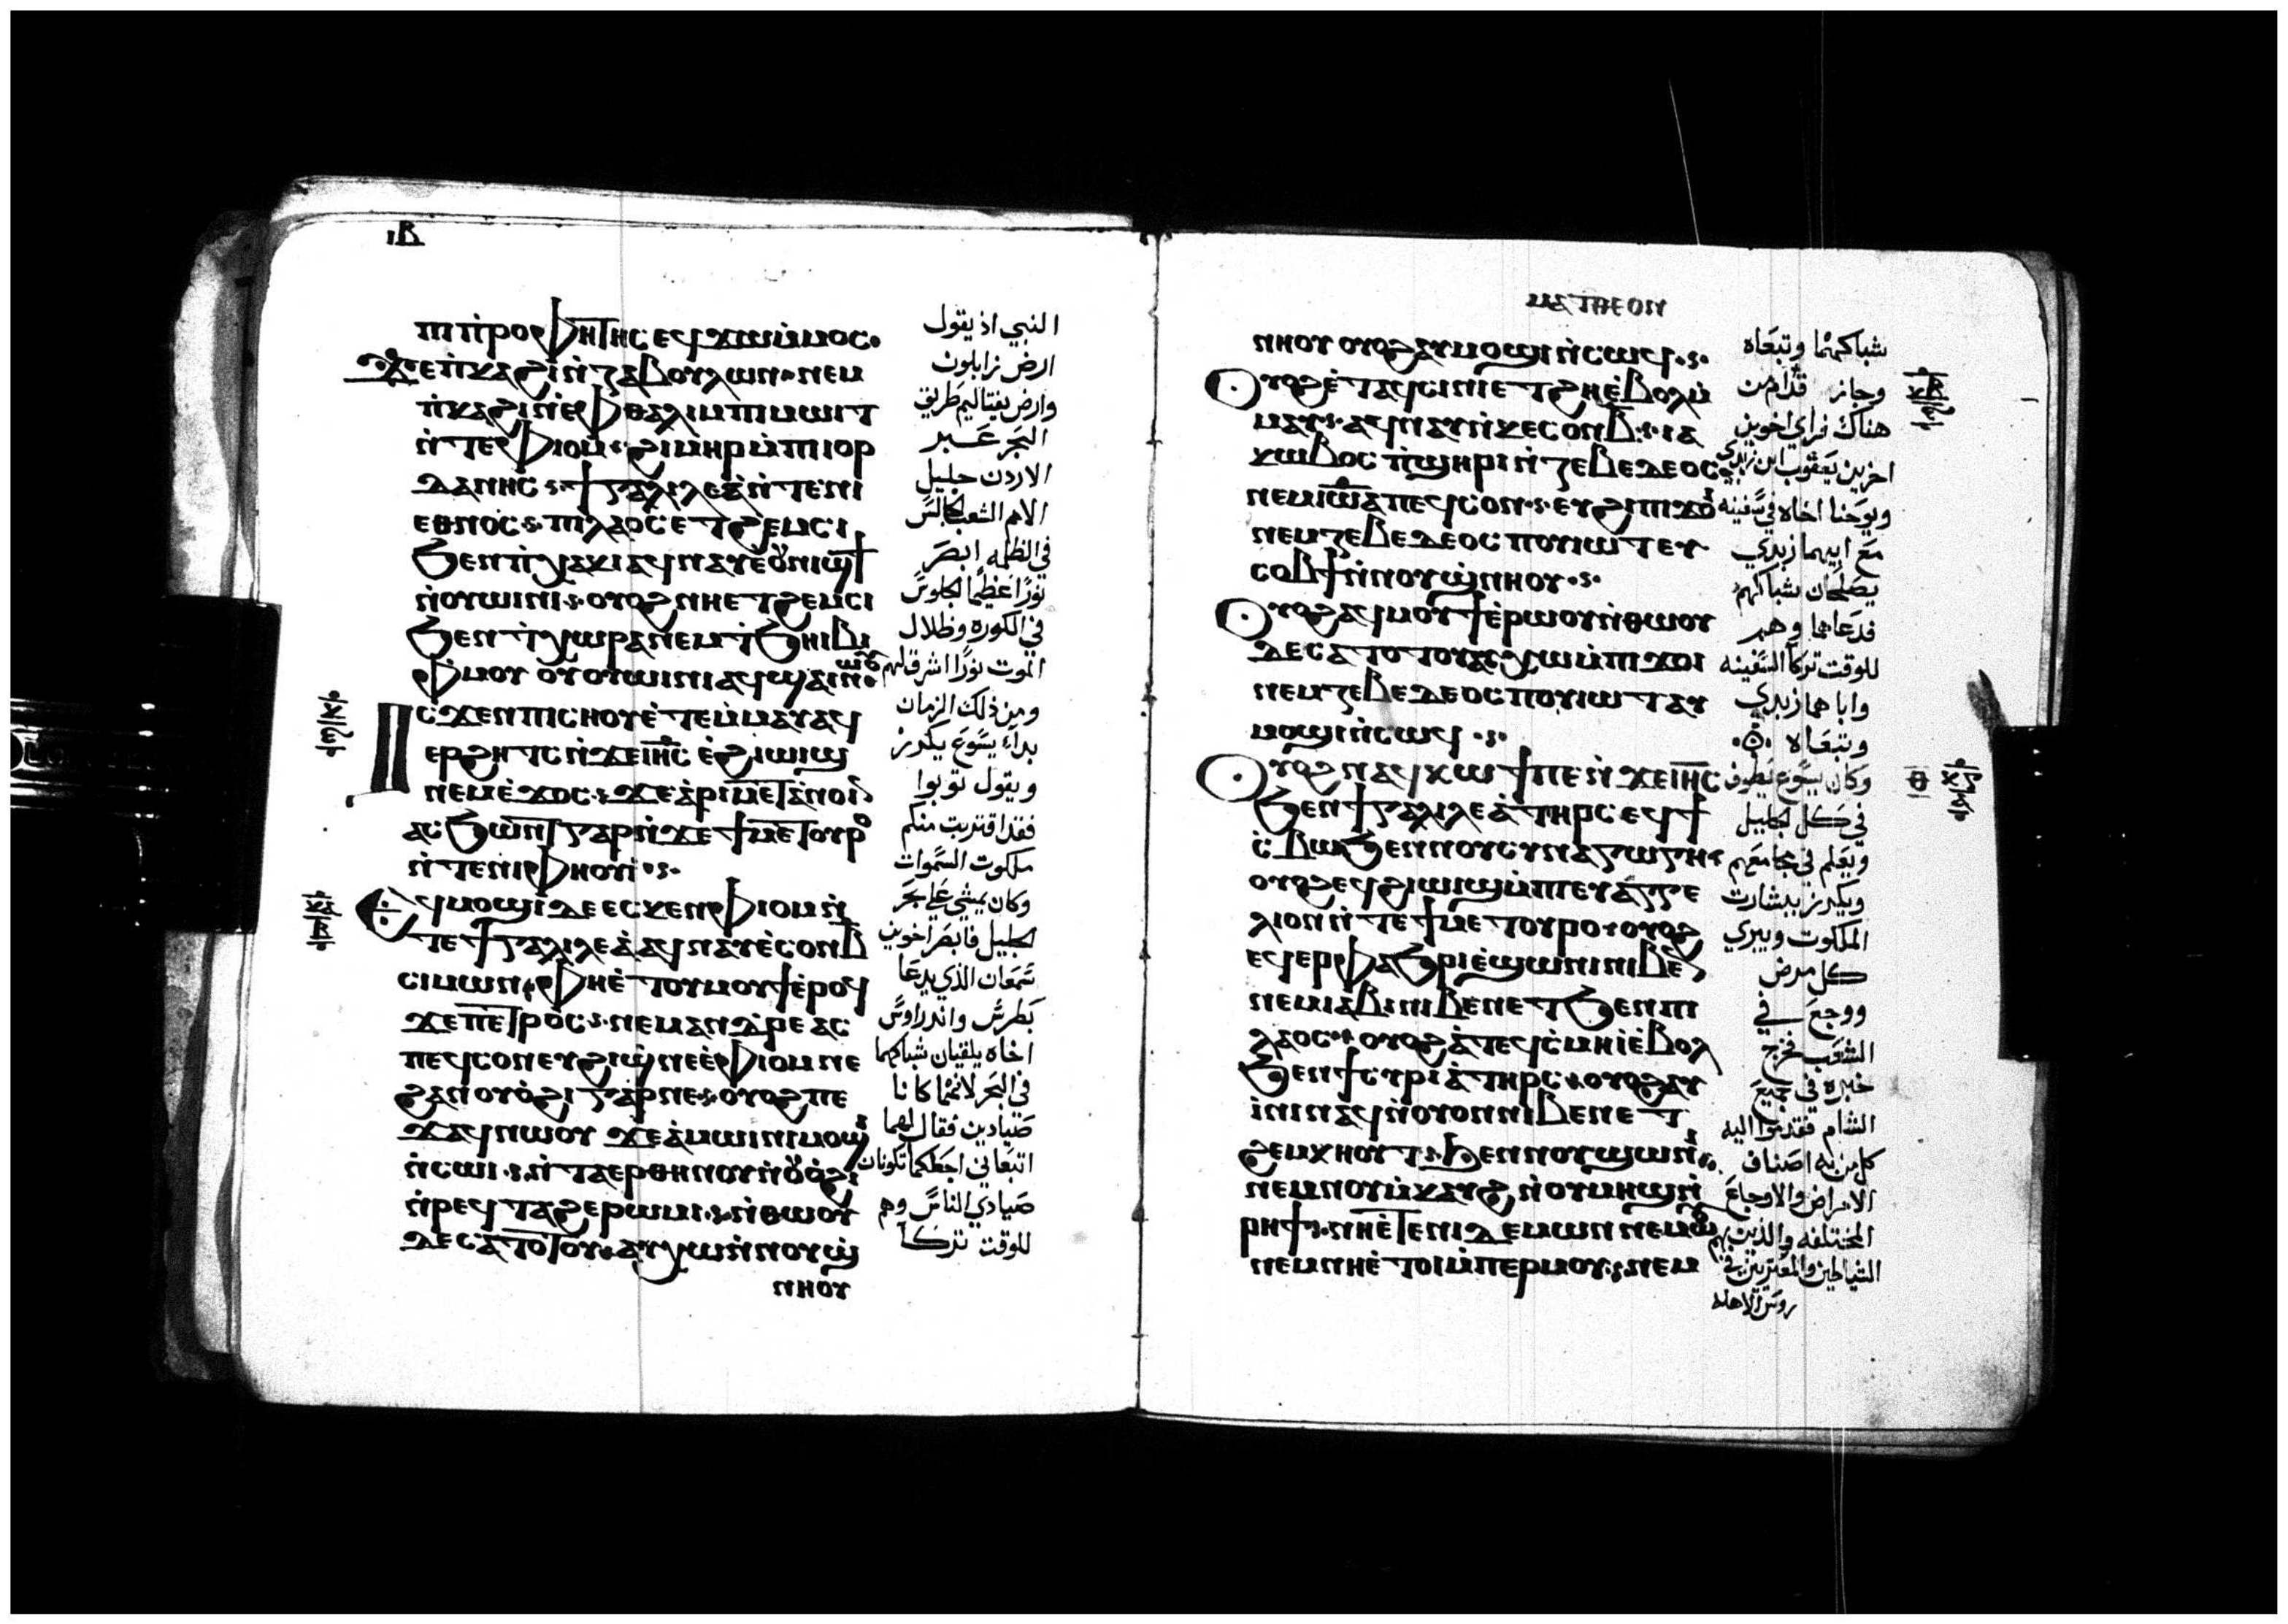 ⲓⲃ
ⲡⲓⲡ̀ⲣⲟⲫⲏⲧⲏⲥ ⲉϥϫⲱⲙ̀ⲙⲟⲥ·
ϫⲉⲡ̀ⲕⲁϩⲓⲛ̀ⲍⲁⲃⲟⲩⲗⲱⲛ·ⲛⲉⲙ
ⲡ̀ⲕⲁϩⲓⲛ̀ⲉⲫⲑⲁⲗⲓⲙⲡⲓⲙⲱⲓⲧ
ⲛ̀ⲧⲉⲫⲓⲟⲙ·ϩⲓⲙⲏⲣⲙ̀ⲡⲓⲓⲟⲣ
ⲇⲁⲛⲏⲥ·ϯⲅⲁⲗⲓⲗⲉⲁ̀ⲛ̀ⲧⲉⲛⲓ
ⲉⲑⲛⲟⲥ·ⲡⲓⲗⲁⲟⲥⲉⲧϩⲉⲙⲥⲓ
ϧⲉⲛⲡ̀ⲭⲁⲕⲓⲁϥⲛⲁⲩⲉ̀ⲟⲩⲛⲓϣϯ
ⲛ̀ⲟⲩⲱⲓⲛⲓ·ⲟⲩⲟϩⲛⲏⲉⲧϩⲉⲙⲥⲓ
ϧⲉⲛⲧ̀ⲭⲱⲣⲁⲛⲉⲙⲧ̀ϧⲏⲓⲃⲓ
ⲙ̀ⲫⲙⲟⲩ ⲟⲩⲟⲩⲱⲓⲛⲓⲁϥϣⲁⲓⲛⲱⲟⲩ
ⲓⲥϫⲉⲛⲡⲓⲥⲏⲟⲩⲉ̀ⲧⲉⲙ̀ⲙⲁⲩⲁϥ
ⲉⲣϩⲏⲧⲥⲛ̀ϫⲉⲓⲏ̅ⲥ̅ ⲉ̀ϩⲓⲱⲓϣ
ⲛⲉⲙⲉ̀ϫⲟⲥ·ϫⲉⲁ̀ⲣⲓⲙⲉⲧⲁⲛⲟⲓⲛ
ⲁⲥϧⲱⲛⲧⲅⲁⲣⲛ̀ϫⲉϯⲙⲉⲧⲟⲩⲣⲟ
ⲛ̀ⲧⲉⲛⲓⲫⲏⲟⲩⲓ̀·
ⲉϥⲙⲟϣⲓⲇⲉⲉⲥⲕⲉⲛⲫⲓⲟⲙⲛ̀
ⲧⲉϯⲅⲁⲗⲓⲗⲉⲁ̀ⲁϥⲛⲁⲩⲉ̀ⲥⲟⲛⲃ̅
ⲥⲓⲙⲱⲛ·ⲫⲏⲉ̀ⲧⲟⲩⲙⲟⲩϯⲉ̀ⲣⲟϥ
ϫⲉⲡⲉⲧⲣⲟⲥ·ⲛⲉⲙⲁⲛⲇⲣⲉⲁⲥ
ⲡⲉϥⲥⲟⲛⲉⲩϩⲓϣ̀ⲛⲉⲉ̀ⲫⲓⲟⲙⲛⲉ
ϩⲁⲛⲟⲩⲟ̀ϩⲓⲅⲁⲣⲛⲉ·ⲟⲩⲟϩⲡⲉ
ϫⲁϥⲛⲱⲟⲩ ϫⲉⲁ̀ⲙⲱⲓⲛⲓⲙⲟϣⲓ
ⲛ̀ⲥⲱⲓ·ⲛ̀ⲧⲁⲉⲣⲑⲏⲛⲟⲩⲛ̀ⲟⲩⲟ̀ϩⲓ
ⲛ̀ⲣⲉϥⲧⲁϩⲉⲣⲱⲙⲓ·ⲛ̀ⲑⲱⲟⲩ
ⲇⲉⲥⲁⲧⲟⲧⲟⲩ·ⲁⲩⲭⲱⲛ̀ⲛⲟⲩϣ̀
ⲛⲏⲟⲩ
النبي اذ يقول
ارض زابلون
وارض نفتاليم طريق
البحر عبر
الاردن جليل
الامم الشعب الجالس
في الظلمه ابصر
نورًا عظيمًا الجلوس
في الكورة وظلال
الموت نورًا اشرق لهم
ومن ذلك الزمان
بداء يسوع يكرز
ويقول توبوا
فقد اقتربت منكم
ملكوت السموات
وكان يمشي على بحر
الجليل فابصر اخوين
سمعان الذي يدعا
بطرس واندراوس
اخاه يلقيان شباكهما
في البحر لانهما كانا
صيادين فقال لهما
اتبعاني اجعلكما تكونان
صيادي الناس وهم
للوقت تركا
ⲙⲁⲧⲑⲉⲟⲛ
ⲛⲏⲟⲩ ⲟⲩⲟϩⲁⲩⲙⲟϣⲓⲛ̀ⲥⲱϥ·
ⲟⲩⲟϩⲉ̀ⲧⲁϥⲥⲓⲛⲓⲉⲧϩⲏⲉ̀ⲃⲟⲗⲙ̀
ⲙⲁⲩ·ⲁϥⲛⲁⲩⲛ̀ⲕⲉⲥⲟⲛⲃ̅·ⲓⲁ
ⲕⲱⲃⲟⲥ ⲡ̀ϣⲏⲣⲓⲛ̀ⲍⲉⲃⲉⲇⲉⲟⲥ
ⲛⲉⲙⲓⲱ̅ⲁ ⲡⲉϥⲥⲟⲛ·ⲉⲩϩⲓⲡⲓϫⲟⲓ
ⲛⲉⲙⲍⲉⲃⲉⲇⲉⲟⲥ ⲡⲟⲩⲓⲱⲧⲉⲩ
ⲥⲟⲃϯⲛ̀ⲛⲟⲩϣ̀ⲛⲏⲟⲩ·
ⲟⲩⲟϩⲁϥⲙⲟⲩϯⲉ̀ⲣⲱⲟⲩⲛ̀ⲑⲱⲟⲩ
ⲇⲉⲥⲁⲧⲟⲧⲟⲩⲁⲩⲭⲱⲙ̀ⲡⲓϫⲟⲓ
ⲛⲉⲙⲍⲉⲃⲉⲇⲉⲟⲥ ⲡⲟⲩⲓⲱⲧⲁⲩ
ⲙⲟϣⲓⲛ̀ⲥⲱϥ·
ⲟⲩⲟϩⲛⲁϥⲕⲱϯⲡⲉⲛ̀ϫⲉⲓⲏ̅ⲥ̅
ϧⲉⲛϯⲅⲁⲗⲓⲗⲉⲁ̀ⲧⲏⲣⲥ ⲉϥϯ
ⲥ̀ⲃⲱϧⲉⲛⲛⲟⲩⲥⲩⲛⲁⲅⲱⲅⲏ·
ⲟⲩⲟϩⲉϥϩⲓⲱⲓϣⲙ̀ⲡⲉⲩⲁⲅⲅⲉ
ⲗⲓⲟⲛⲛ̀ⲧⲉϯⲙⲉⲧⲟⲩⲣⲟ·ⲟⲩⲟϩ
ⲉϥⲉⲣⲫⲁϧⲣⲓⲉ̀ϣⲱⲛⲓⲛⲓⲃⲉⲛ
ⲛⲉⲙⲓⲁⲃⲓⲛⲓⲃⲉⲛⲉⲧϧⲉⲛⲡⲓ
ⲗⲁⲟⲥ·ⲟⲩⲟϩⲁ̀ⲧⲉϥⲥ̀ⲙⲏⲓ̀ⲉ̀ⲃⲟⲗ
ϧⲉⲛϯⲥⲩⲣⲓⲁ̀ⲧⲏⲣⲥ·ⲟⲩⲟϩⲁⲩ
ⲓ̀ⲛⲓⲛⲁϥⲛ̀ⲟⲩⲟⲛⲛⲓⲃⲉⲛⲉⲧ
ϩⲉⲙⲕⲏⲟⲩⲧ·ϧⲉⲛⲛⲟⲩϣⲱⲛⲓ
ⲛⲉⲙⲛⲟⲩⲙ̀ⲕⲁⲩϩⲛ̀ⲟⲩⲙⲏϣⲛ̀
ⲣⲏϯ·ⲛⲏⲉ̀ⲧⲉⲛⲓⲇⲉⲙⲱⲛ ⲛⲉⲙⲱⲟⲩ
ⲛⲉⲙⲛⲏⲉ̀ⲧⲟⲓⲙ̀ⲡⲉⲣⲙⲟⲩ·ⲛⲉⲙ
شباكهما وتبعاه
وجاز قدام من
هناك فراي اخوين
اخرين يعقوب ابن زبدي
ويوحنا اخاه في سفينه
مع ابيهما زبدي
يصلحان شباكهم
فدعاهما وهم
للوقت تركا السفينه
واباهما زبدي
وتبعاه
وكان يسوع يطوف
في كل الجليل
ويعلم في مجامعهم
ويكرز ببشارت
الملكوت ويبري
كل مرض
ووجع في
الشعب فخرج
خبره في جميع
الشام فقدموا اليه
كل من به اصناف
الامراض والاوجاع
المختلفه والذين بهم
الشياطين والمعترين في
روس الاهله